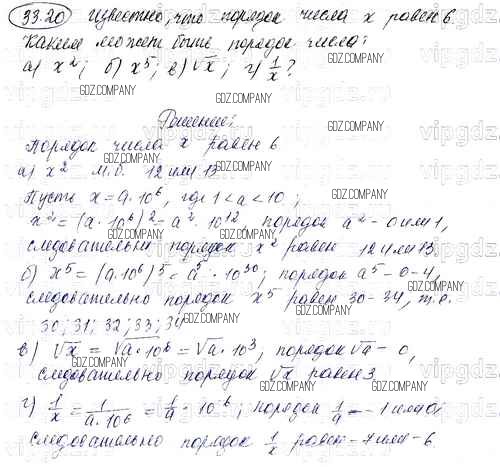 33.20 Известно, что порядок числа x равен 6.
Каким может быть порядок числа:
а) x²; б) x⁵; в) √x; г) 1/x?
GDZ.COMPANY
Решение:
Порядок числа x равен 6
а) x² м.б. 12 или 13
Пусть x = a·10⁶, где 1 < a < 10;
x² = (a·10⁶)² = a²·10¹², порядок a² - 0 или 1,
следовательно порядок x² равен 12 или 13.
б) x⁵ = (a·10⁶)⁵ = a⁵·10³⁰; порядок a⁵ - 0-4,
следовательно порядок x⁵ равен 30-34, т.е.
30; 31; 32; 33; 34
в) √x = √a·10⁶ = √a·10³, порядок √a - 0,
следовательно порядок √x равен 3
г) 1/x = 1/a·10⁶ = 1/a·10⁻⁶; порядок 1/a - -1 или 0
следовательно порядок 1/x равен -7 или -6.